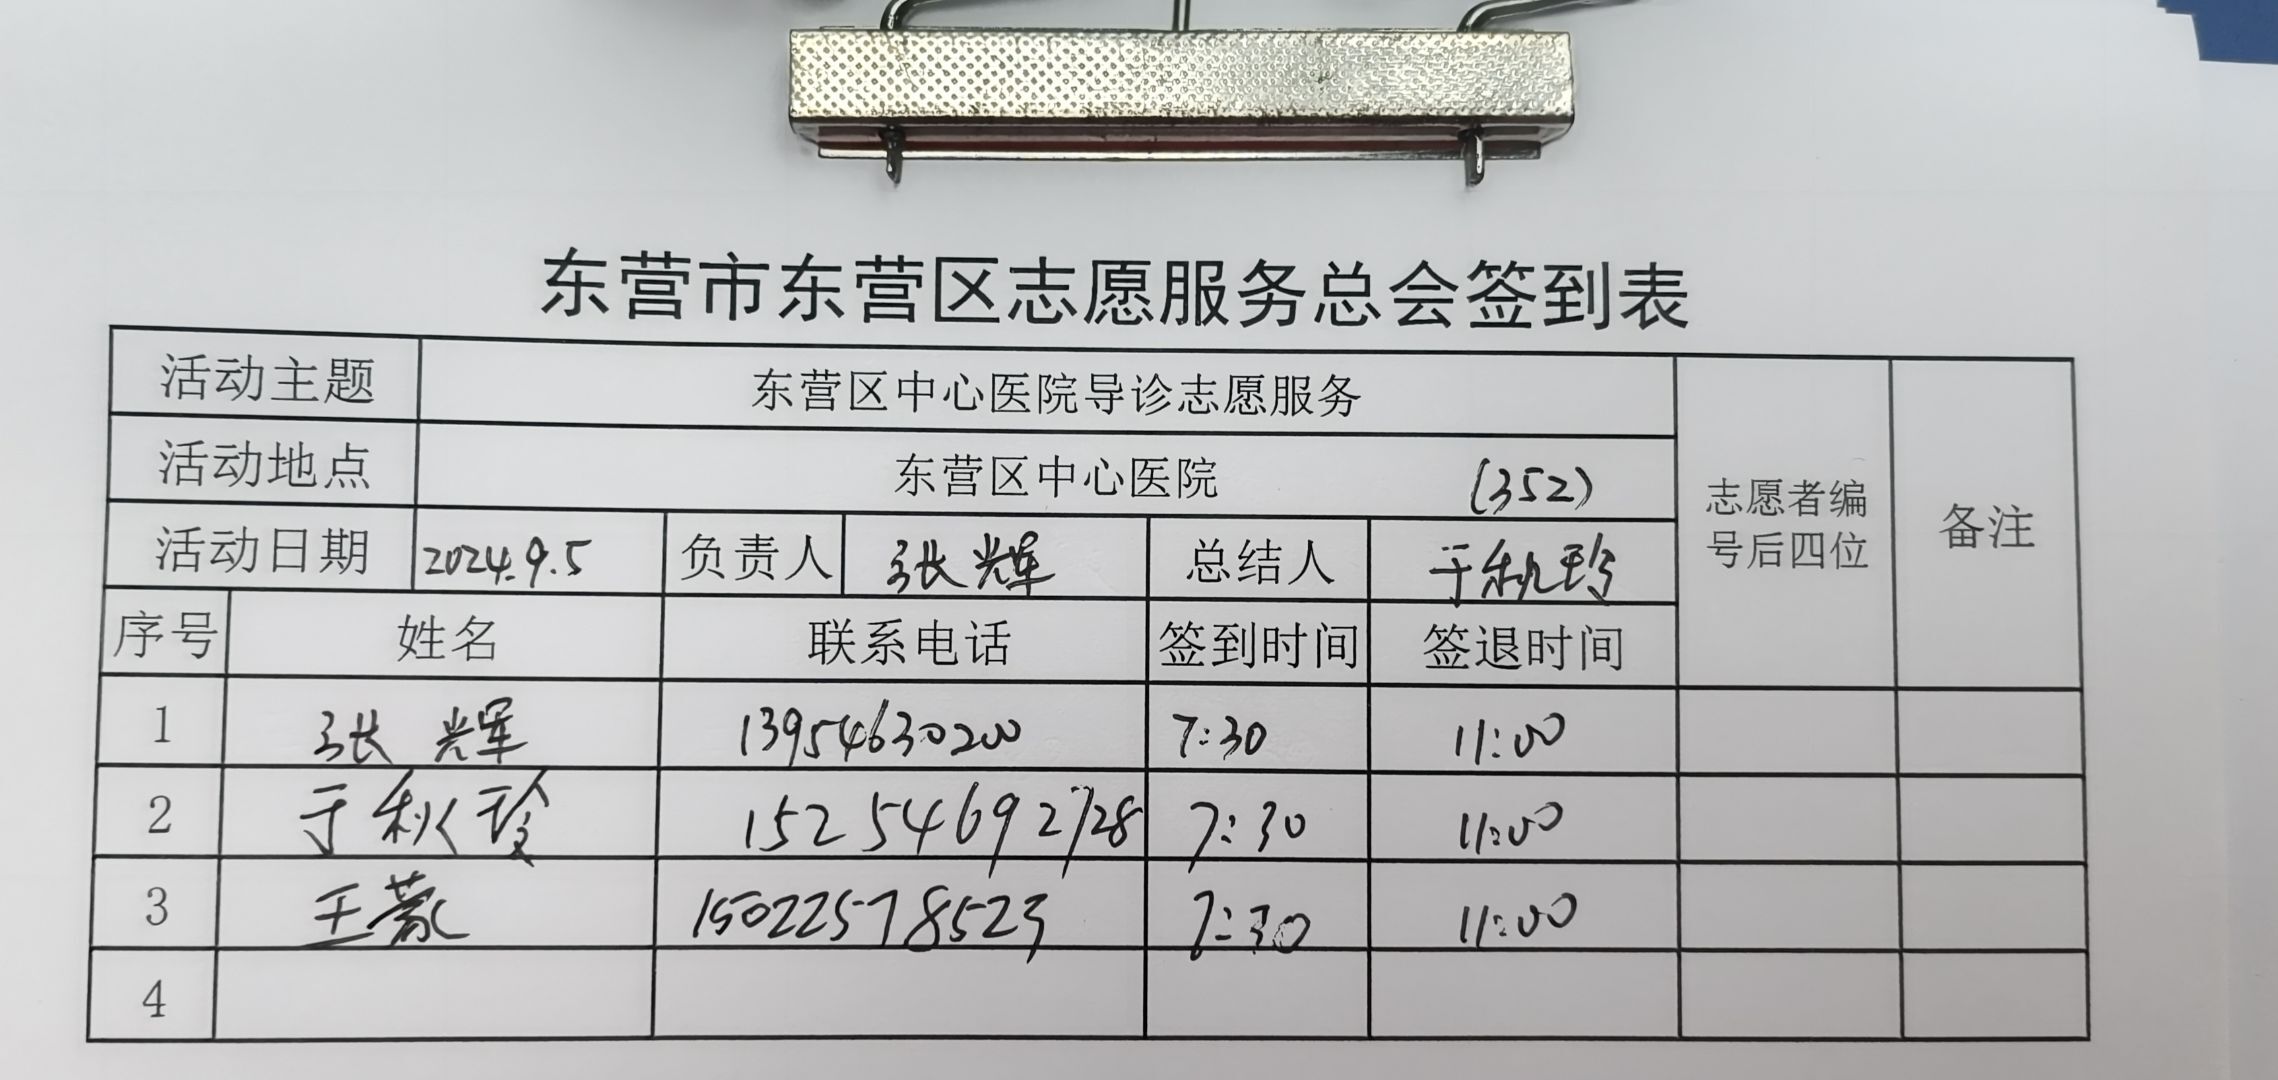 东营市东营区志愿服务总会签到表
活动主题 东营区中心医院导诊志愿服务 志愿者编号后四位 备注
活动地点 东营区中心医院 (352)
活动日期 2024.9.5 负责人 张辉 总结人 于秋玲
序号 姓名 联系电话 签到时间 签退时间
1 张辉 13954630200 7:30 11:00
2 于秋玲 15254692728 7:30 11:00
3 王 15022578523 7:30 11:00
4